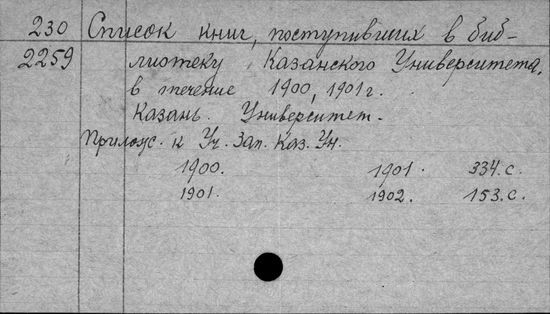 230 Список книг, поступивших в биб-
2259 лиотеку Казанского Университета,
в течение 1900, 1901 г.
Казань. Университет.
Прилож. к Уч. Зап. Каз. Ун.
1900. 1901. 334. с.
1901. 1902. 153. с.